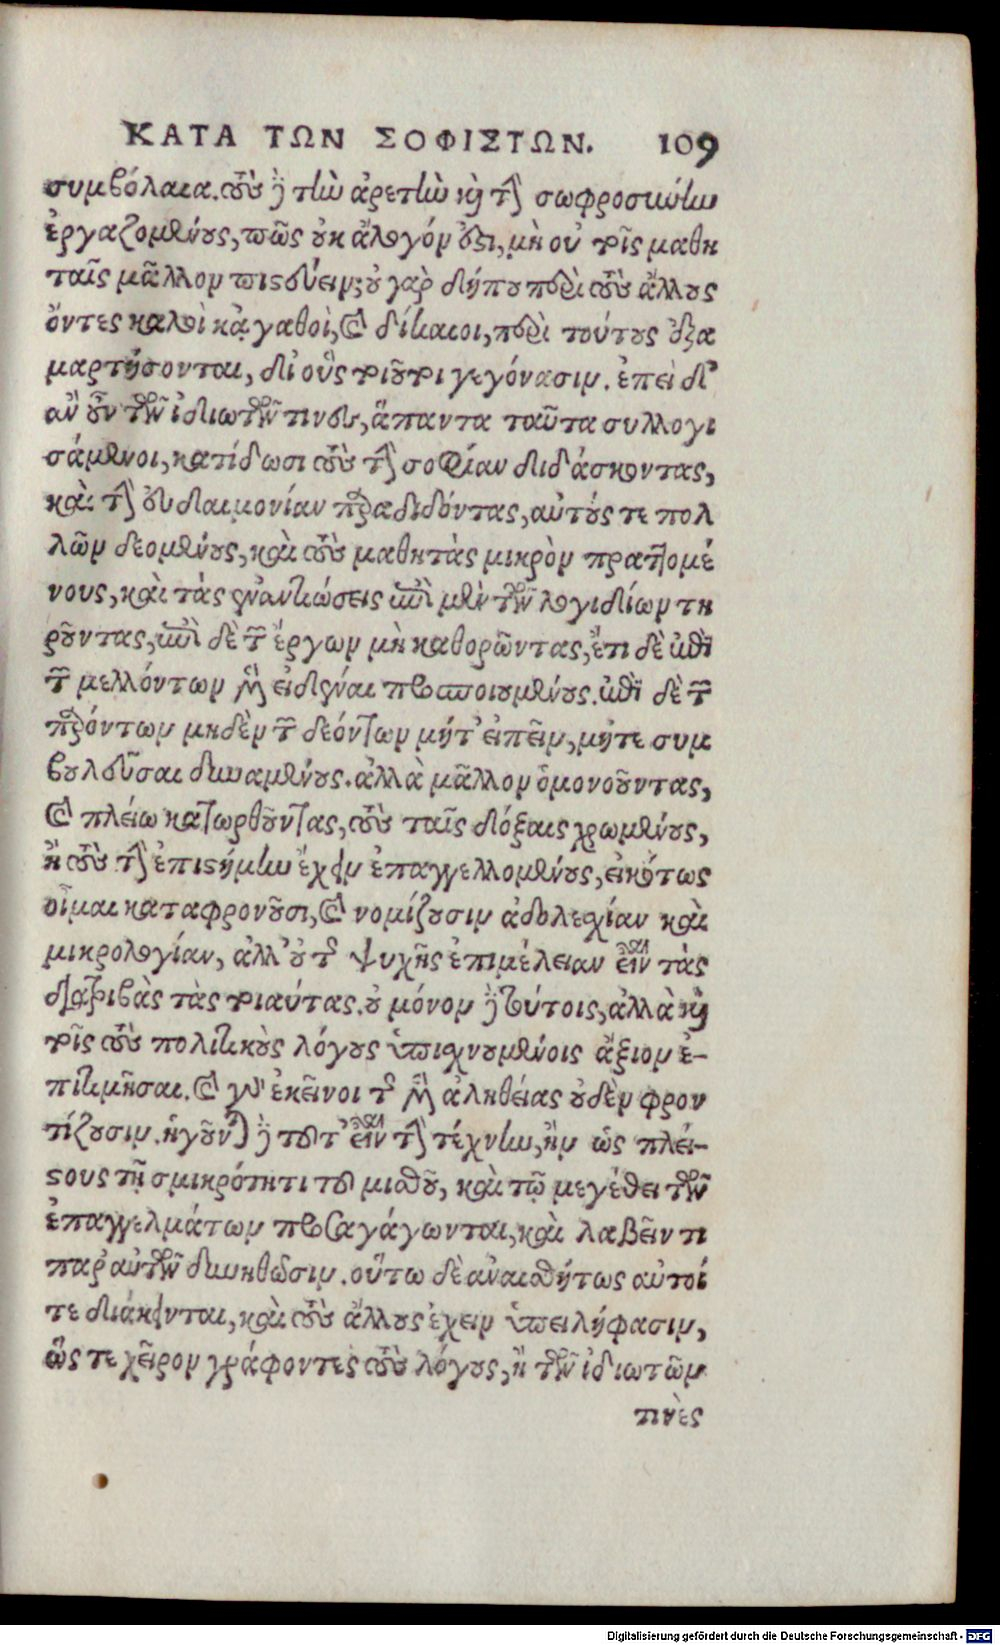 ΚΑΤΑ ΤΩΝ ΣΟΦΙΣΤΩΝ. 109
συμβόλαια. τοὺς δὲ τὴν ἀρετὴν καὶ τὴν σωφροσύνην
ἐργαζομένους, πῶς οὐκ ἄλογόν ἐστι, μὴ οὐ τοῖς μαθη
ταῖς μᾶλλον πιστεύειν; οὐ γὰρ δήπου περὶ τοὺς ἄλλους
ὄντες καλοὶ κἀγαθοὶ, καὶ δίκαιοι, περὶ τούτους ἐξα
μαρτήσονται, δι' οὓς τοιοῦτοι γεγόνασιν. ἐπειδ'
ἂν οὖν τῶν ἰδιωτῶν τινὲς, ἅπαντα ταῦτα συλλογι
σάμενοι, κατίδωσι τοὺς τὴν σοφίαν διδάσκοντας,
καὶ τὴν εὐδαιμονίαν παραδιδόντας, αὐτούς τε πολ
λῶν δεομένους, καὶ τοὺς μαθητὰς μικρὸν πραττομέ
νους, καὶ τὰς ἐναντιώσεις ἐπὶ μὲν τῶν λογιδίων τη
ροῦντας, ἐπὶ δὲ τῶν ἔργων μὴ καθορῶντας, ἔτι δὲ περὶ
τῶν μελλόντων μὲν εἰδέναι προσποιουμένους. περὶ δὲ τῶν
παρόντων μηδὲν τῶν δεόντων μήτ' εἰπεῖν, μήτε συμ
βουλεῦσαι δυναμένους. ἀλλὰ μᾶλλον ὁμονοοῦντας,
καὶ πλείω κατωρθοῦντας, τοὺς ταῖς δόξαις χρωμένους,
ἢ τοὺς τὴν ἐπιστήμην ἔχειν ἐπαγγελλομένους, εἰκότως
οἶμαι καταφρονοῦσι, καὶ νομίζουσιν ἀδολεχίαν καὶ
μικρολογίαν, ἀλλ' οὐ τῆς ψυχῆς ἐπιμέλειαν εἶναι τὰς
διατριβὰς τὰς τοιαύτας. οὐ μόνον δὲ τούτοις, ἀλλὰ καὶ
τοῖς τοὺς πολιτικοὺς λόγους ὑπισχνουμένοις ἄξιον ἐ-
πιτιμῆσαι. καὶ γὰρ ἐκεῖνοι τῆς μὲν ἀληθείας οὐδὲν φρον
τίζουσιν. ἡγοῦνται δὲ τοῦτ' εἶναι τὴν τέχνην, ἢν ὡς πλεί-
στους τῇ σμικρότητι τοῦ μισθοῦ, καὶ τῷ μεγέθει τῶν
ἐπαγγελμάτων προσαγάγωνται, καὶ λαβεῖν τι
παρ' αὐτῶν δυνηθῶσιν. οὕτω δὲ ἀναισθήτως αὐτοί
τε διάκεινται, καὶ τοὺς ἄλλους ἔχειν ὑπειλήφασιν,
ὥστε χεῖρον γράφοντες τοὺς λόγους, ἢ τῶν ἰδιωτῶν
τινὲς
Digitalisierung gefördert durch die Deutsche Forschungsgemeinschaft - DFG